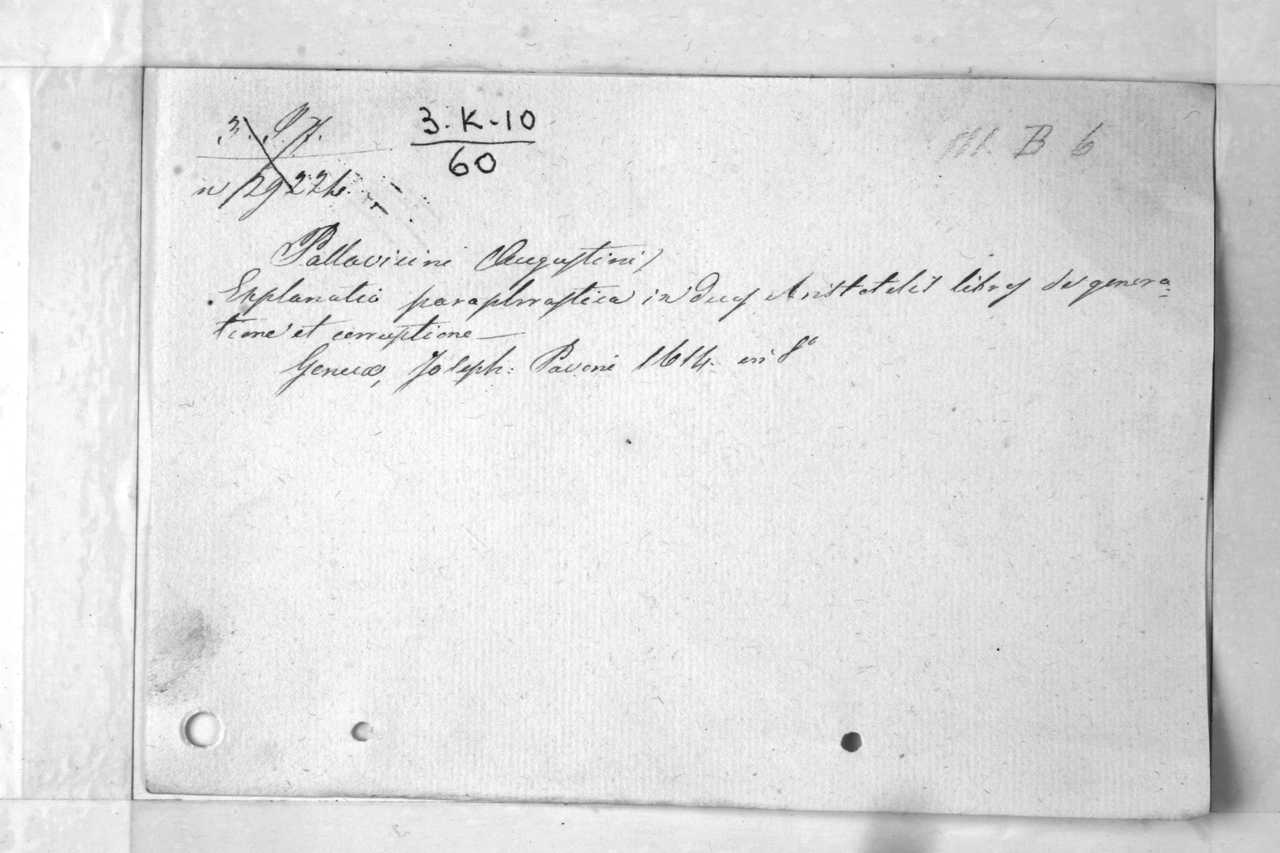 3. K - 10
60
B 6
Pallavicini Augustini
Explanatio paraphrastica in duos Aristotelis libros de genera-
tione et corruptione
Genuæ, Joseph: Pavoni 1614. in 8°